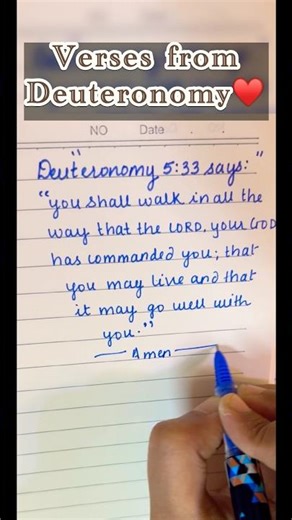 Verses from
Deuteronomy❤️
NO Date
"Deuteronomy 5:33 says:"
"you shall walk in all the
way that the LORD, your GOD
has commanded you; that
you may live and that
it may go well with
you."
Amen